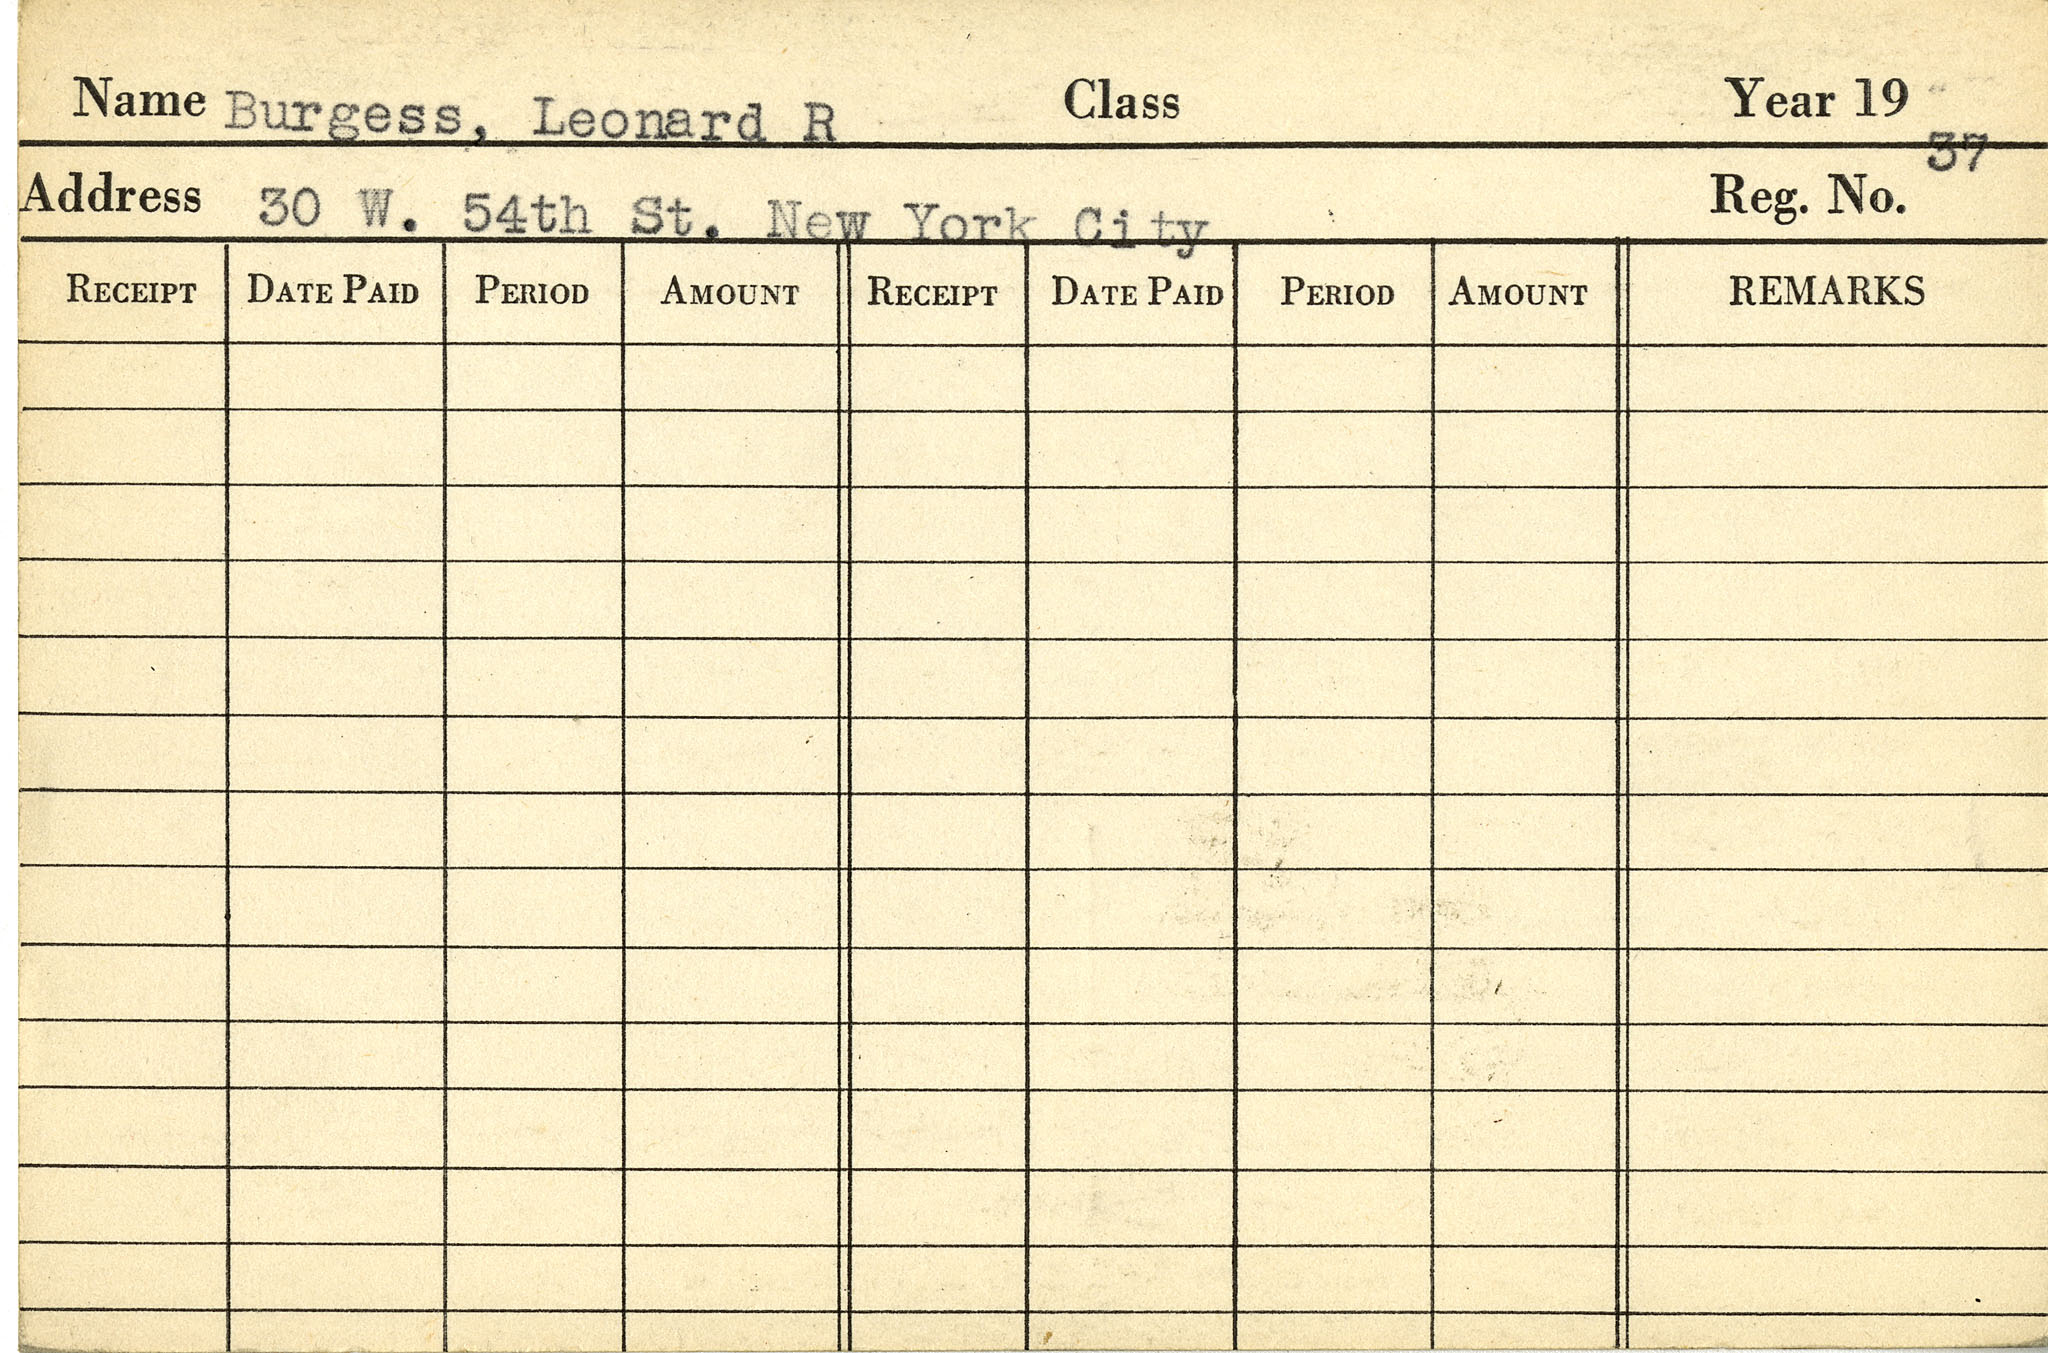 Name Burgess, Leonard R Class Year 19 37
Address 30 W. 54th St. New York City Reg. No.
RECEIPT DATE PAID PERIOD AMOUNT RECEIPT DATE PAID PERIOD AMOUNT REMARKS